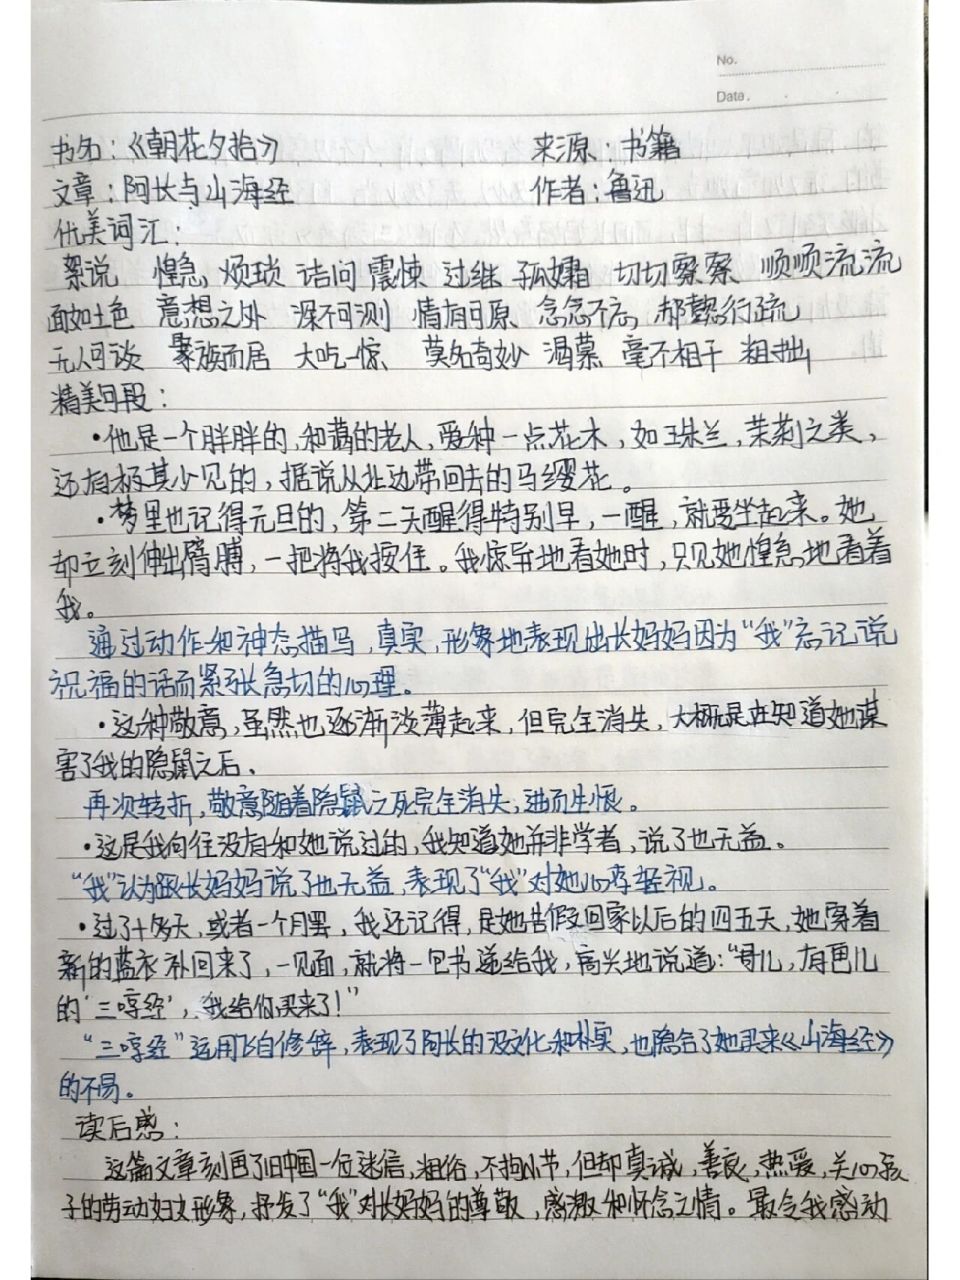 No.
Date.
书名：《朝花夕拾》 来源：书籍
文章：阿长与山海经 作者：鲁迅
优美词汇：
絮说 惶急 烦琐 诘问 震悚 过继 孤孀 切切察察 顺顺流流
面如土色 意想之外 深不可测 情有可原 念念不忘 郝懿行疏
无人可谈 聚族而居 大吃一惊 莫名奇妙 渴慕 毫不相干 粗拙
精美句段：
·他是一个胖胖的，和蔼的老人，爱种一点花木，如珠兰，茉莉之类，
还有极其少见的，据说从北边带回去的马缨花。
·梦里也记得元旦的，第二天醒得特别早，一醒，就要坐起来。她
却立刻伸出臂膊，一把将我按住。我惊异地看她时，只见她惶急地看着
我。
通过动作和神态描写，真实，形象地表现出长妈妈因为“我”忘记说
祝福的话而紧张急切的心理。
·这种敬意，虽然也逐渐淡薄起来，但完全消失，大概是在知道她谋
害了我的隐鼠之后。
再次转折，敬意随着隐鼠之死完全消失，进而生恨。
·这是我向往没有和她说过的，我知道她并非学者，说了也无益。
“我”认为跟长妈妈说了也无益，表现了“我”对她心存轻视。
·过了十多天，或者一个月罢，我还记得，是她告假回家以后的四五天，她穿着
新的蓝衣补回来了，一见面，就将一包书递给我，高兴地说道：“哥儿，有画儿
的‘三哼经’，我给你买来了！”
“三哼经”运用飞白修辞，表现了阿长的没文化和朴实，也隐含了她买来《山海经》
的不易。
读后感：
这篇文章刻画了旧中国一位迷信，粗俗，不拘小节，但却真诚，善良，热爱，关心孩
子的劳动妇女形象，抒发了“我”对长妈妈的尊敬，感激和怀念之情。最令我感动